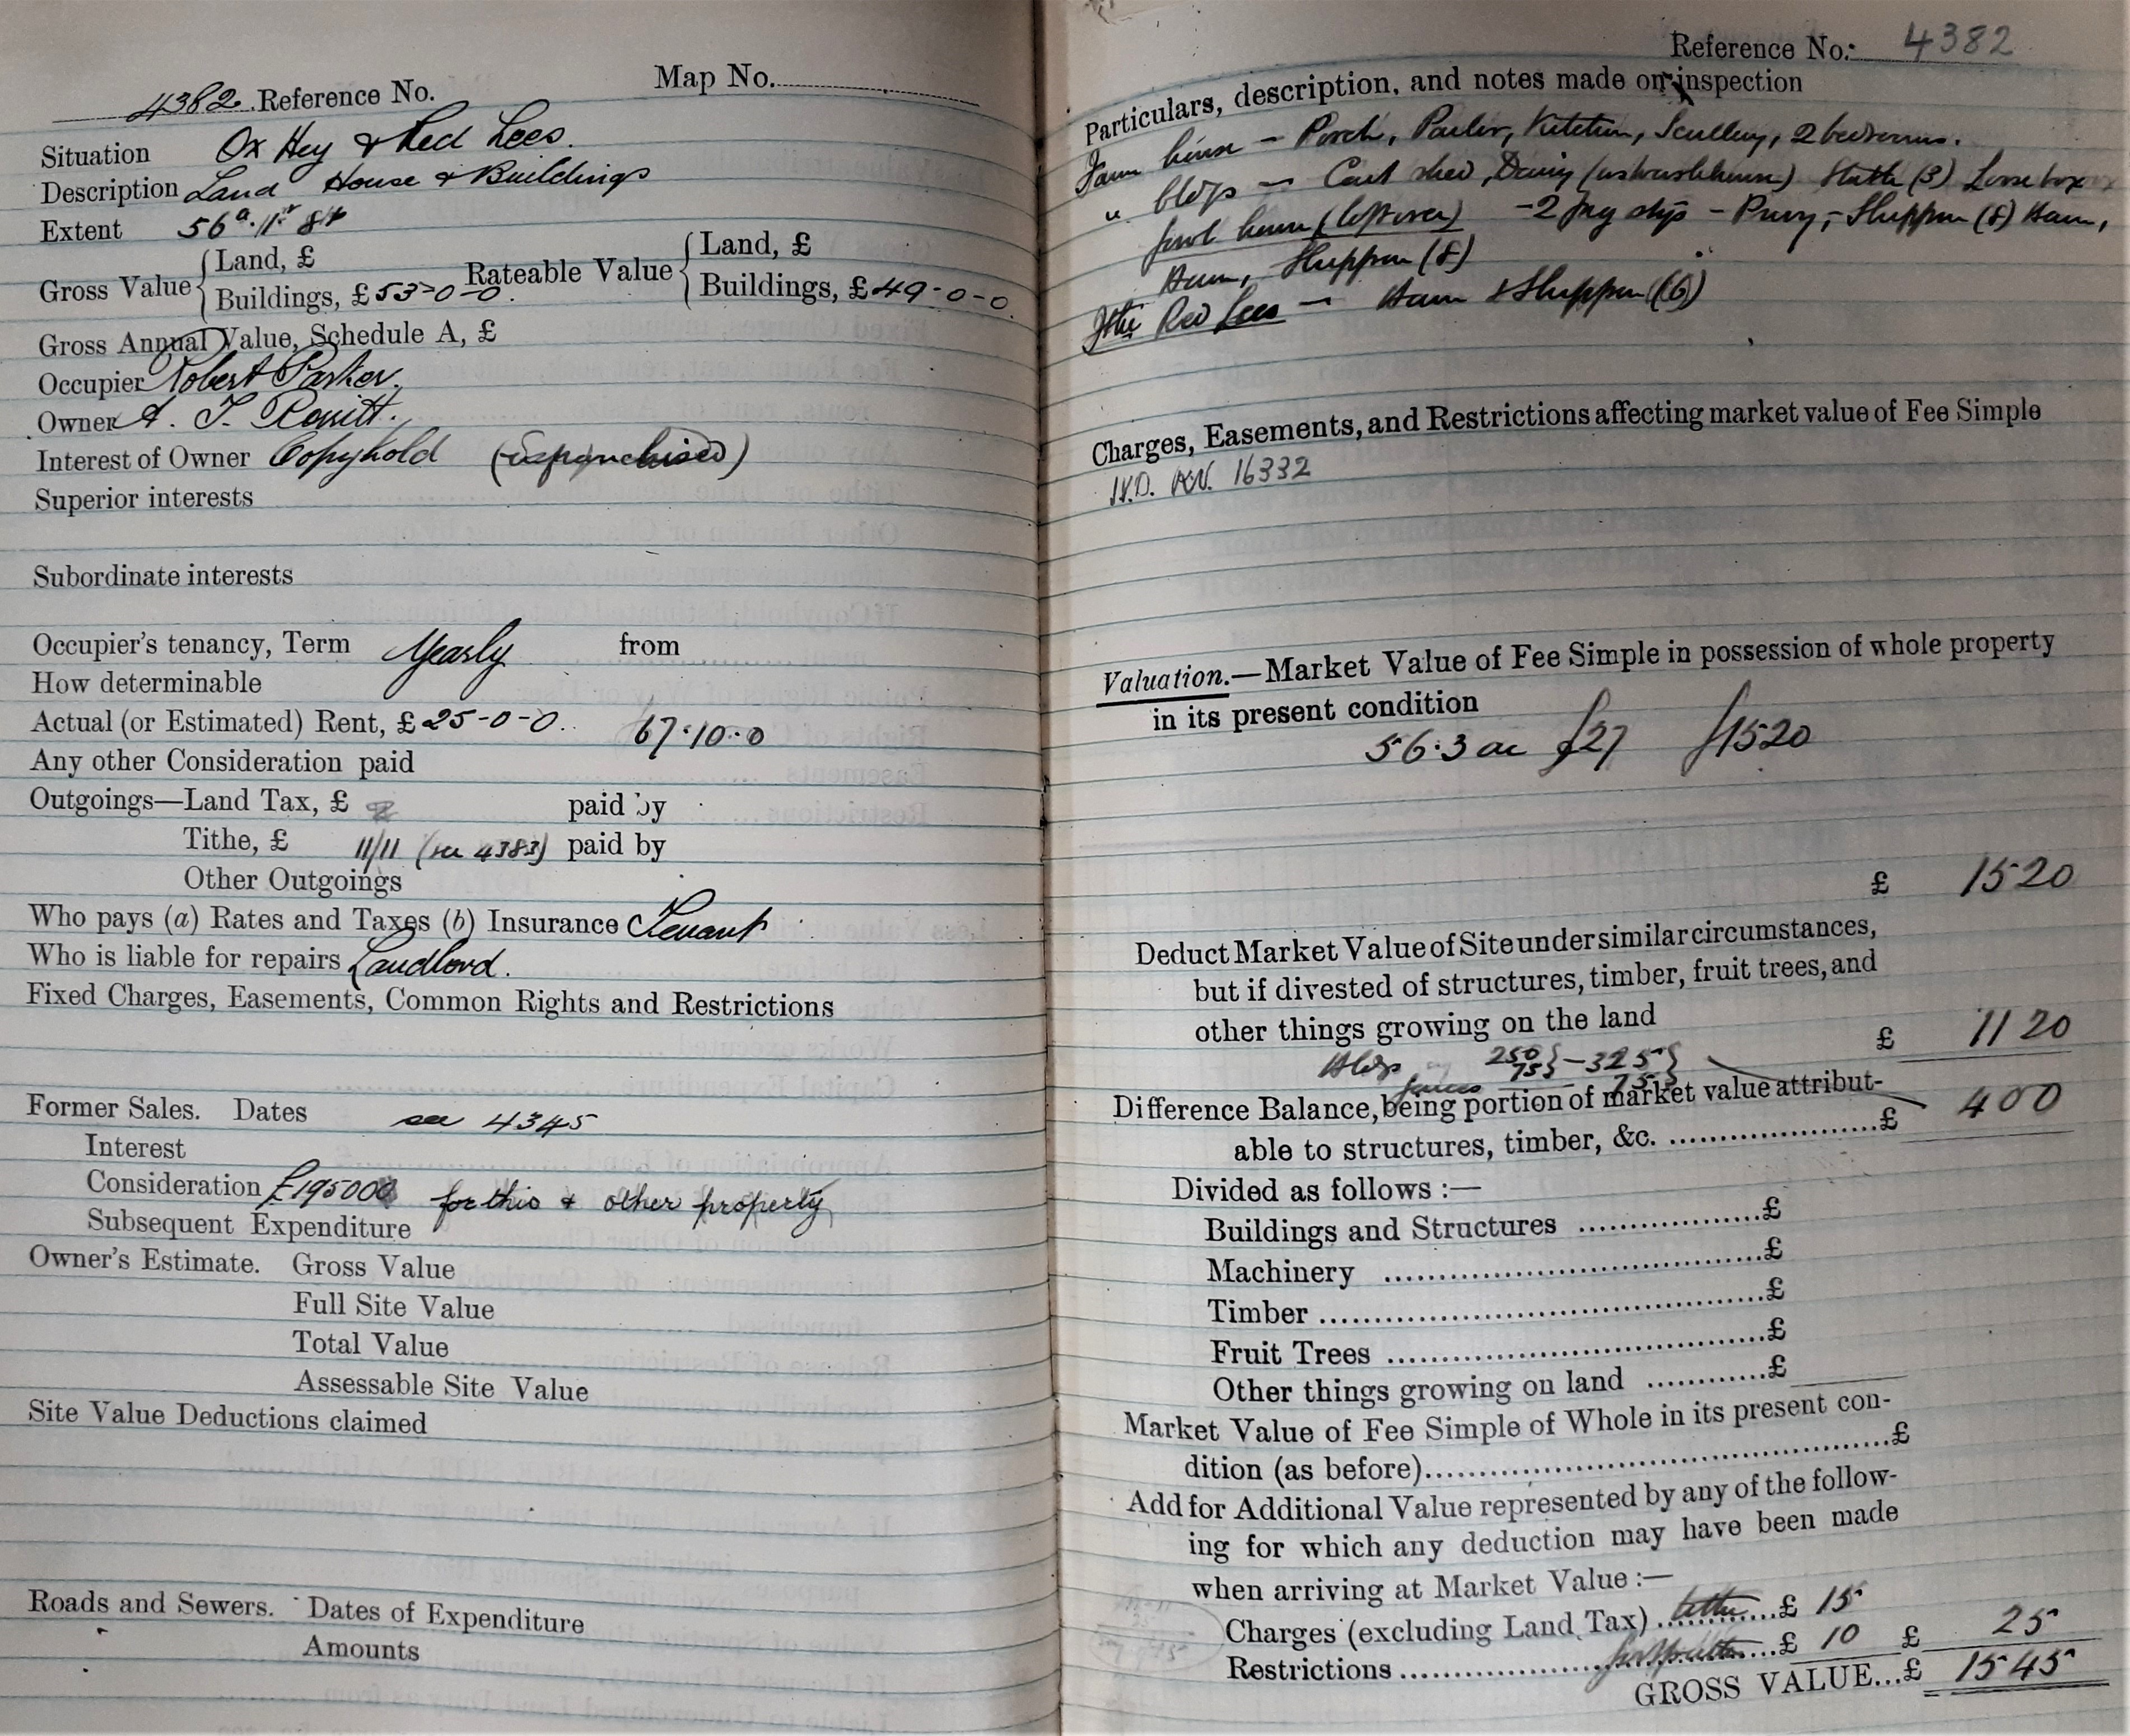 4382 Reference No. Map No.
Situation Ox Hey & Red Lees.
Description Land House & Buildings
Extent 56a. 1r 8p
Gross Value { Land, £ Rateable Value { Land, £
Buildings, £53-0-0. Buildings, £49-0-0.
Gross Annual Value, Schedule A, £
Occupier Robert Parker.
Owner A. T.
Interest of Owner Copyhold (Enfranchised)
Superior interests
Subordinate interests
Occupier's tenancy, Term Yearly from
How determinable
Actual (or Estimated) Rent, £25-0-0. 67.10.0
Any other Consideration paid
Outgoings—Land Tax, £ paid by
Tithe, £ 11/11 (see 4383) paid by
Other Outgoings
Who pays (a) Rates and Taxes (b) Insurance Tenant
Who is liable for repairs Landlord.
Fixed Charges, Easements, Common Rights and Restrictions
Former Sales. Dates see 4345
Interest
Consideration £19500 for this & other property
Subsequent Expenditure
Owner's Estimate. Gross Value
Full Site Value
Total Value
Assessable Site Value
Site Value Deductions claimed
Roads and Sewers. Dates of Expenditure
Amounts
Reference No: 4382
Particulars, description, and notes made on inspection
Farm house - Porch, Parlor, Kitchen, Scullery, 2 bedrooms.
" bldgs - Cart shed, Dairy (as washhouse) Stable (3) Loose box
fowl house (loft over) - 2 pig stys - Privy, - Shippon (8) Barn,
Barn, Shippon (8)
Red Lees - Barn & Shippon (6)
Charges, Easements, and Restrictions affecting market value of Fee Simple
16332
Valuation.—Market Value of Fee Simple in possession of whole property
in its present condition
56.3 ac £27 £1520
£ 1520
Deduct Market Value of Site under similar circumstances,
but if divested of structures, timber, fruit trees, and
other things growing on the land
£ 1120
Bldgs 250 } - 325 }
fences 75 } 75 }
Difference Balance, being portion of market value attribut-
able to structures, timber, &c. ....................£ 400
Divided as follows :—
Buildings and Structures .................£
Machinery ...................................£
Timber .........................................£
Fruit Trees ...................................£
Other things growing on land ............£
Market Value of Fee Simple of Whole in its present con-
dition (as before)..........................................£
Add for Additional Value represented by any of the follow-
ing for which any deduction may have been made
when arriving at Market Value :—
Charges (excluding Land Tax) tithe £ 15
Restrictions ..................... £ 10 £ 25
GROSS VALUE...£ 1545